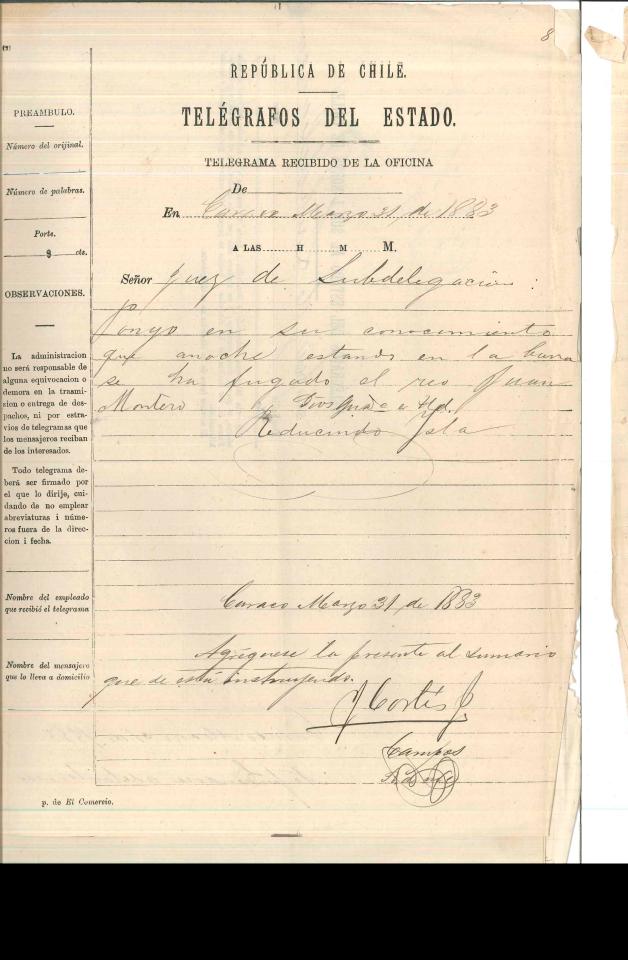 8
(2)
REPÚBLICA DE CHILE.
TELÉGRAFOS DEL ESTADO.
TELEGRAMA RECIBIDO DE LA OFICINA
De
En Marzo 31, de 1883
A LAS H M M.
Señor Juez de Subdelegacion:
pongo en su conocimiento
que anoche estando en la barra
se ha fugado el reo Juan
Montero Dios gua. a Ud.
Reducindo Isla
Marzo 31, de 1883
Agréguese la presente al sumario
que se está instruyendo.
J Cortés J.
Campos
PREAMBULO.
Número del orijinal.
Número de palabras.
Porte.
$ cts.
OBSERVACIONES.
La administracion
no será responsable de
alguna equivocacion o
demora en la trasmi-
sion o entrega de des-
pachos, ni por estra-
vios de telegramas que
los mensajeros reciban
de los interesados.
Todo telegrama de-
berá ser firmado por
el que lo dirije, cui-
dando de no emplear
abreviaturas i núme-
ros fuera de la direc-
cion i fecha.
Nombre del empleado
que recibió el telegrama
Nombre del mensajero
que lo lleva a domicilio
p. de El Comercio.